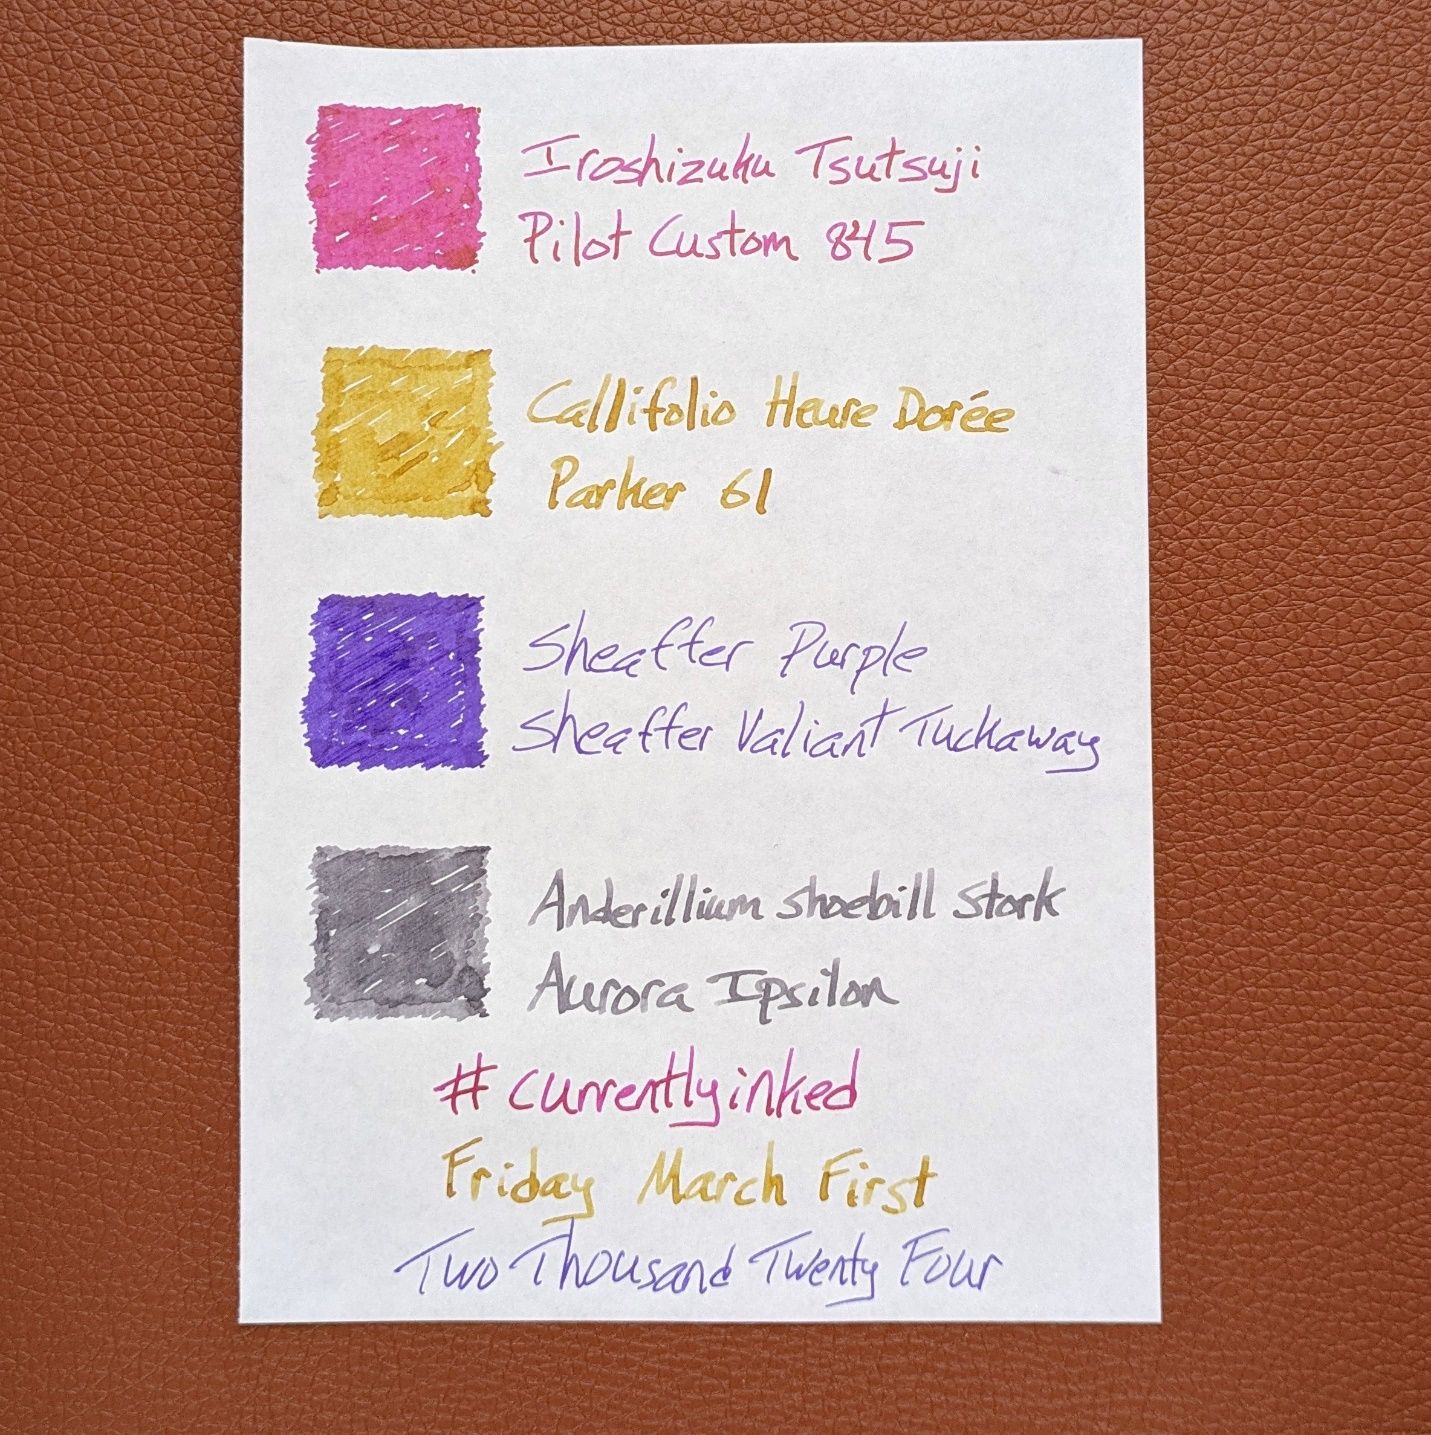 Iroshizuku Tsutsuji
Pilot Custom 845
Callifolio Heure Dorée
Parker 61
Sheaffer Purple
Sheaffer Valiant Tuckaway
Anderillium Shoebill Stork
Aurora Ipsilon
#currentlyinked
Friday March First
Two Thousand Twenty Four